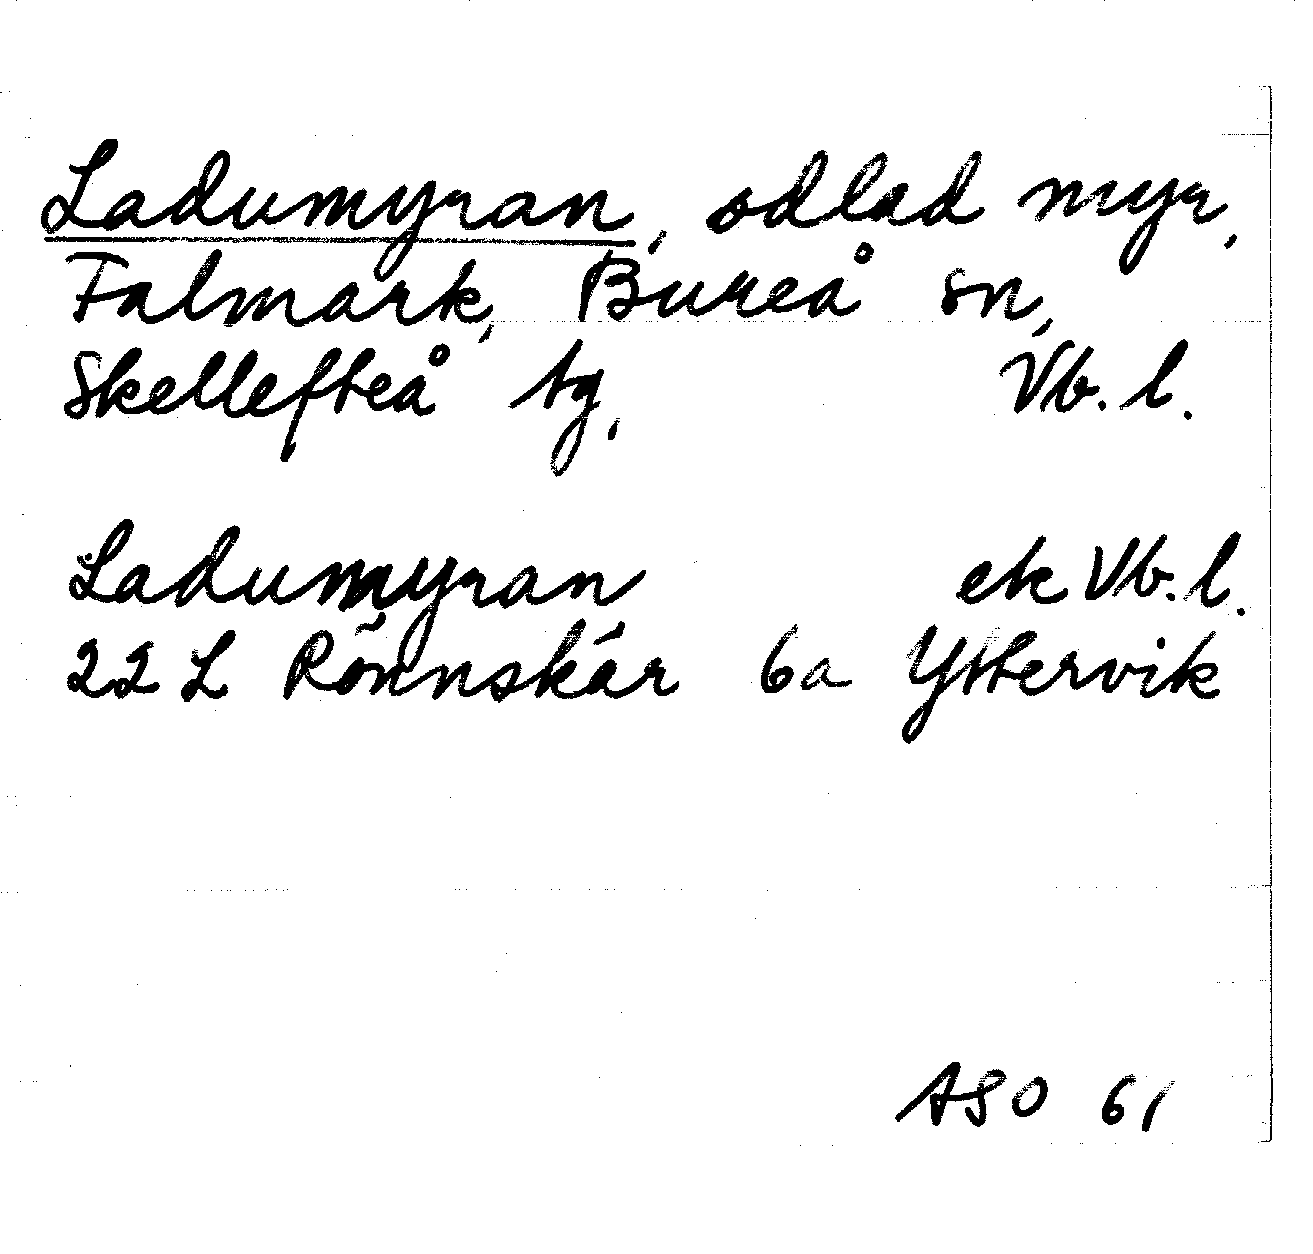 Ladumyran, odlad myr,
Falmark, Bureå sn,
Skellefteå tg, Vb. l.
Ladumyran ek Vb. l.
22 L Rönnskär 6a Yttervik
ASO 61